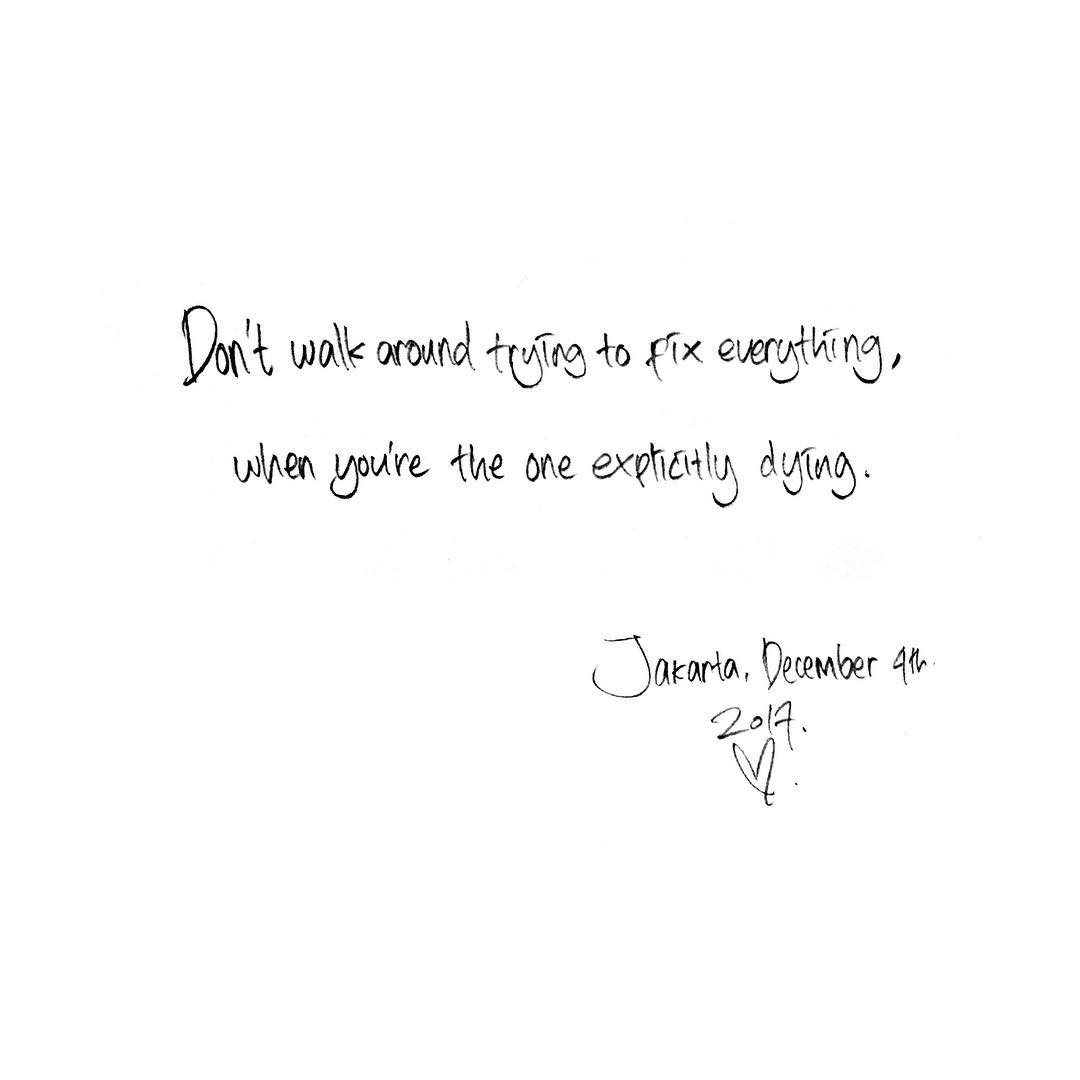 Don't walk around trying to fix everything,
when you're the one explicitly dying.
Jakarta, December 4th.
2017.